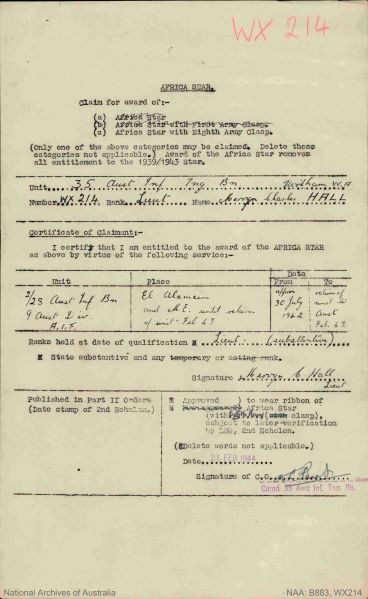 WX 214
AFRICA STAR.
Claim for award of:-
(a) Africa Star
(b) Africa Star with First Army Clasp.
(c) Africa Star with Eighth Army Clasp.
(Only one of the above categories may be claimed. Delete those
categories not applicable.) Award of the Africa Star removes
all entitlement to the 1939/1943 Star.
Unit 35 Aust Inf Tng Bn Northam W.A
Number WX 214 Rank Lieut Name Mervyn Charles HALL
Certificate of Claimant:-
I certify that I am entitled to the award of the AFRICA STAR
as above by virtue of the following service:-
Date
Unit Place From To
2/28 Aust Inf Bn El Alamein approx return of
9 Aust Div. and M.E. until return 30 July unit to
A.I.F. of unit Feb 43 1942 Aust
Feb 43.
Ranks held at date of qualification Lieut. (substantive)
State substantive and any temporary or acting rank.
Signature Mervyn C Hall
Lieut
Published in Part II Orders
(Date stamp of 2nd Echelon.)
Approved ) to wear ribbon of
) Africa Star
(with clasp),
subject to later verification
by LHQ, 2nd Echelon.
(Delete words not applicable.)
Date 21 FEB 1944
Signature of C.O. Major
Comd 35 Aust Inf. Tng. Bn.
National Archives of Australia
NAA: B883, WX214